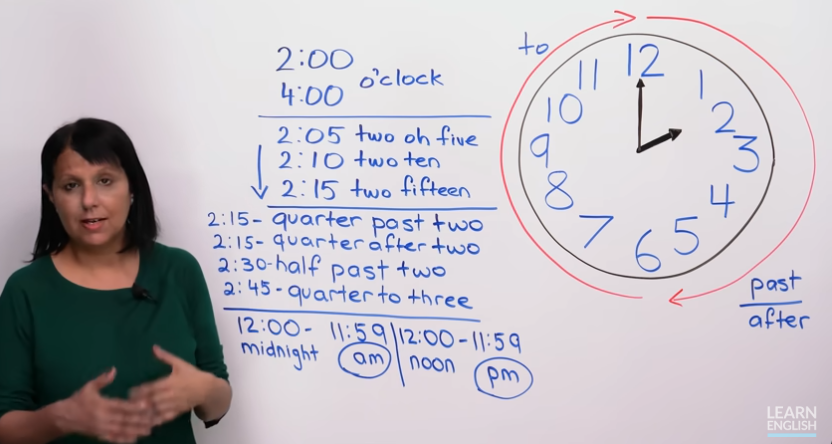 2:00
4:00
o'clock
2:05 two oh five
2:10 two ten
2:15 two fifteen
2:15- quarter past two
2:15- quarter after two
2:30-half past two
2:45-quarter to three
12:00- 11:59
midnight am
12:00-11:59
noon pm
to
12
1
2
3
4
5
6
7
8
9
10
11
past
after
LEARN
ENGLISH